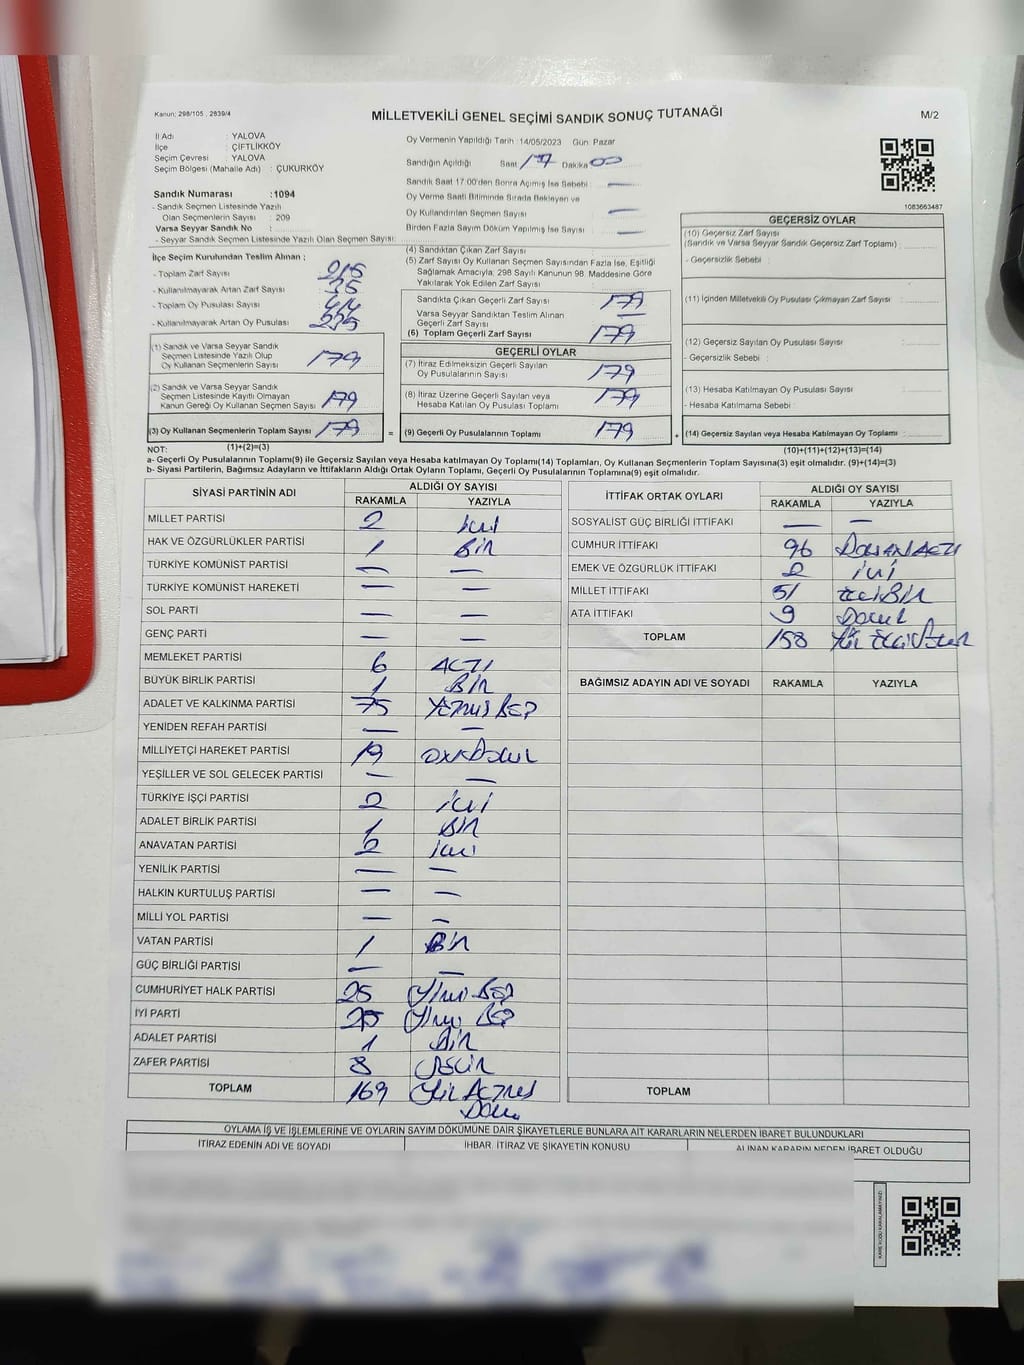 Kanun: 298/105 , 2839/4
MİLLETVEKİLİ GENEL SEÇİMİ SANDIK SONUÇ TUTANAĞI
M/2
İl Adı : YALOVA
İlçe : ÇİFTLİKKÖY
Seçim Çevresi : YALOVA
Seçim Bölgesi (Mahalle Adı) : ÇUKURKÖY
Oy Vermenin Yapıldığı Tarih :14/05/2023 Gün: Pazar
Sandığın Açıldığı Saat 17 Dakika 00
Sandık Saat 17:00'den Sonra Açımış İse Sebebi : —
Oy Verme Saati Bitiminde Sırada Bekleyen ve
Oy Kullandırılan Seçmen Sayısı : —
Birden Fazla Sayım Döküm Yapılmış İse Sayısı : —
1083663487
Sandık Numarası :1094
- Sandık Seçmen Listesinde Yazılı
Olan Seçmenlerin Sayısı : 209
Varsa Seyyar Sandık No :
- Seyyar Sandık Seçmen Listesinde Yazılı Olan Seçmen Sayısı:
İlçe Seçim Kurulundan Teslim Alınan ;
- Toplam Zarf Sayısı :
- Kullanılmayarak Artan Zarf Sayısı :
- Toplam Oy Pusulası Sayısı :
- Kullanılmayarak Artan Oy Pusulası :
(1) Sandık ve Varsa Seyyar Sandık
Seçmen Listesinde Yazılı Olup
Oy Kullanan Seçmenlerin Sayısı : 179
(2) Sandık ve Varsa Seyyar Sandık
Seçmen Listesinde Kayıtlı Olmayan
Kanun Gereği Oy Kullanan Seçmen Sayısı : 179
(3) Oy Kullanan Seçmenlerin Toplam Sayısı : 179
(4) Sandıktan Çıkan Zarf Sayısı :
(5) Zarf Sayısı Oy Kullanan Seçmen Sayısından Fazla İse, Eşitliği
Sağlamak Amacıyla, 298 Sayılı Kanunun 98. Maddesine Göre
Yakılarak Yok Edilen Zarf Sayısı :
Sandıkta Çıkan Geçerli Zarf Sayısı : 179
Varsa Seyyar Sandıktan Teslim Alınan
Geçerli Zarf Sayısı : —
(6) Toplam Geçerli Zarf Sayısı : 179
GEÇERLİ OYLAR
(7) İtiraz Edilmeksizin Geçerli Sayılan
Oy Pusulalarının Sayısı : 179
(8) İtiraz Üzerine Geçerli Sayılan veya
Hesaba Katılan Oy Pusulası Toplamı : 179
= (9) Geçerli Oy Pusulalarının Toplamı : 179
GEÇERSİZ OYLAR
(10) Geçersiz Zarf Sayısı
(Sandık ve Varsa Seyyar Sandık Geçersiz Zarf Toplamı) :
- Geçersizlik Sebebi :
(11) İçinden Milletvekili Oy Pusulası Çıkmayan Zarf Sayısı :
(12) Geçersiz Sayılan Oy Pusulası Sayısı :
- Geçersizlik Sebebi :
(13) Hesaba Katılmayan Oy Pusulası Sayısı :
- Hesaba Katılmama Sebebi :
+ (14) Geçersiz Sayılan veya Hesaba Katılmayan Oy Toplamı :
NOT: (1)+(2)=(3) (10)+(11)+(12)+(13)=(14)
a- Geçerli Oy Pusulası Toplamı(9) ile Geçersiz Sayılan veya Hesaba katılmayan Oy Toplamı(14) Toplamları, Oy Kullanan Seçmenlerin Toplam Sayısına(3) eşit olmalıdır. (9)+(14)=(3)
b- Siyasi Partilerin, Bağımsız Adayların ve İttifakların Aldığı Ortak Oyların Toplamı, Geçerli Oy Pusulalarının Toplamına(9) eşit olmalıdır.
SİYASİ PARTİNİN ADI ALDIĞI OY SAYISI
RAKAMLA YAZIYLA
MİLLET PARTİSİ 2 iki
HAK VE ÖZGÜRLÜKLER PARTİSİ 1 Bir
TÜRKİYE KOMÜNİST PARTİSİ — —
TÜRKİYE KOMÜNİST HAREKETİ — —
SOL PARTİ — —
GENÇ PARTİ — —
MEMLEKET PARTİSİ 6 ALTI
BÜYÜK BİRLİK PARTİSİ 1 BİR
ADALET VE KALKINMA PARTİSİ 75 YETMİŞ BEŞ
YENİDEN REFAH PARTİSİ — —
MİLLİYETÇİ HAREKET PARTİSİ 19 ON DOKUZ
YEŞİLLER VE SOL GELECEK PARTİSİ — —
TÜRKİYE İŞÇİ PARTİSİ 2 iki
ADALET BİRLİK PARTİSİ 1 BİR
ANAVATAN PARTİSİ 2 iki
YENİLİK PARTİSİ — —
HALKIN KURTULUŞ PARTİSİ — —
MİLLİ YOL PARTİSİ — —
VATAN PARTİSİ 1 BİR
GÜÇ BİRLİĞİ PARTİSİ — —
CUMHURİYET HALK PARTİSİ 25 Yirmi BEŞ
İYİ PARTİ 25 Yirmi BEŞ
ADALET PARTİSİ 1 BİR
ZAFER PARTİSİ 8 SEKİZ
TOPLAM 169 Yüz ALTMIŞ
DOKUZ
İTTİFAK ORTAK OYLARI ALDIĞI OY SAYISI
RAKAMLA YAZIYLA
SOSYALİST GÜÇ BİRLİĞİ İTTİFAKI — —
CUMHUR İTTİFAKI 96 DOKSAN ALTI
EMEK VE ÖZGÜRLÜK İTTİFAKI 2 iki
MİLLET İTTİFAKI 51 ELLİ BİR
ATA İTTİFAKI 9 DOKUZ
TOPLAM 158 Yüz ELLİ SEKİZ
BAĞIMSIZ ADAYIN ADI VE SOYADI RAKAMLA YAZIYLA
TOPLAM
OYLAMA İŞ VE İŞLEMLERİNE VE OYLARIN SAYIM DÖKÜMÜNE DAİR ŞİKAYETLERLE BUNLARA AİT KARARLARIN NELERDEN İBARET BULUNDUKLARI
İTİRAZ EDENİN ADI VE SOYADI İHBAR, İTİRAZ VE ŞİKAYETİN KONUSU ALINAN KARARIN NEDEN İBARET OLDUĞU
KARE KODU KARALAMAYINIZ!